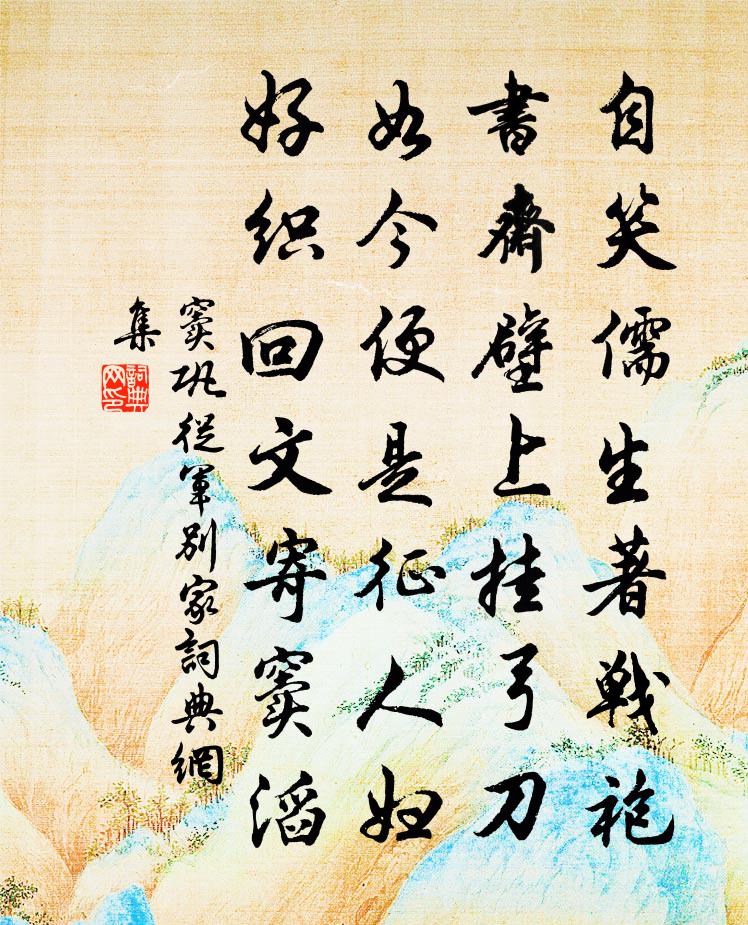 自笑儒生著戰袍
書齋壁上挂弓刀
如今便是征人妇
好织回文寄窦滔
窦巩從軍别家詞典網
集
詞典
网印